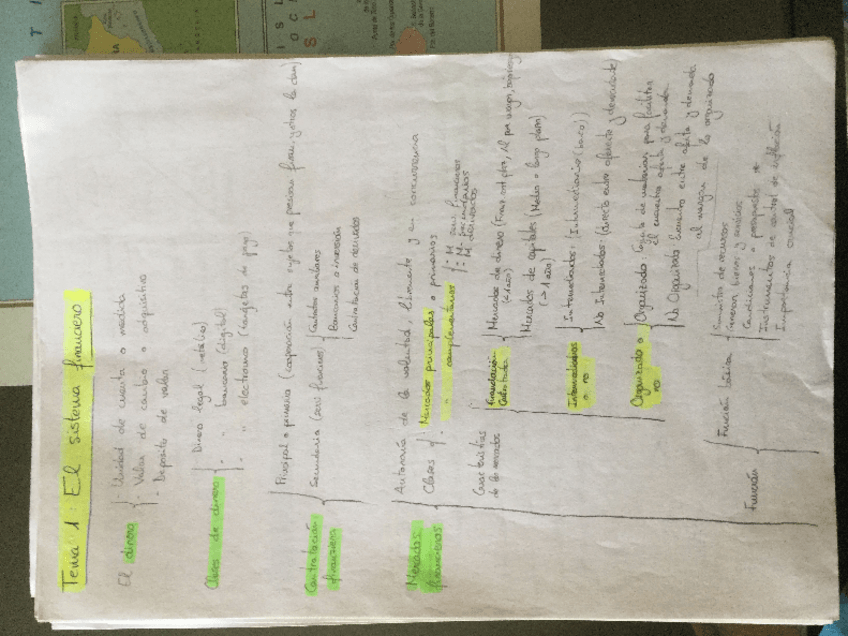 Tema 1: El sistema financiero
El dinero
- Unidad de cuenta o medida
- Valor de cambio o adquisitivo
- Deposito de valor
Clases de dinero
- Dinero legal (metálico)
- " bancario (digital)
- " electronico (targetas de pago)
Contratación financiera
Principal o primaria (cooperación entre sujetos que precisan finan. y otros la dan)
Secundaria (serv financieros)
Contratos auxiliares
Bancarios o inversión
Contratación de mercados
Mercados financieros
Autonomía de la voluntad, libremente y en concurrencia
Clases
- Mercados principales o primarios
- " complementarios
- M. serv. financieros
- M. secundarios
- M. derivados
Características de los mercados
Financiación
Mercados de dinero (Finan. cort plzo,
(< 1 año)
Mercados de capitales (Medio o largo plazo)
(> 1 año)
Intermediados o no
Intermediados: (Intermediario (banco))
No Intermediados: (directo entre oferente y demandante)
Organizado o no
Organizado: para facilitar
El encuentro oferta y demanda
No Organizado: Encuentro entre oferta y demanda
al margen de lo organizado
Función
Función básica
Suministro de recursos
Generan bienes y servicios
Instrumentos de control de inflación
Importancia crucial